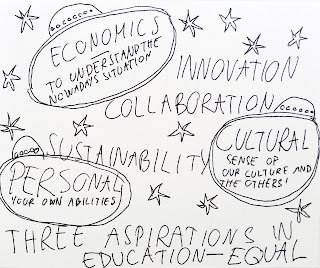 ECONOMICS
TO UNDERSTAND THE
NOWADAYS SITUATION
INNOVATION
COLLABORATION
SUSTAINABILITY
CULTURAL
SENSE OF
OUR CULTURE AND
THE OTHERS'
PERSONAL
YOUR OWN ABILITIES
THREE ASPIRATIONS IN
EDUCATION—EQUAL